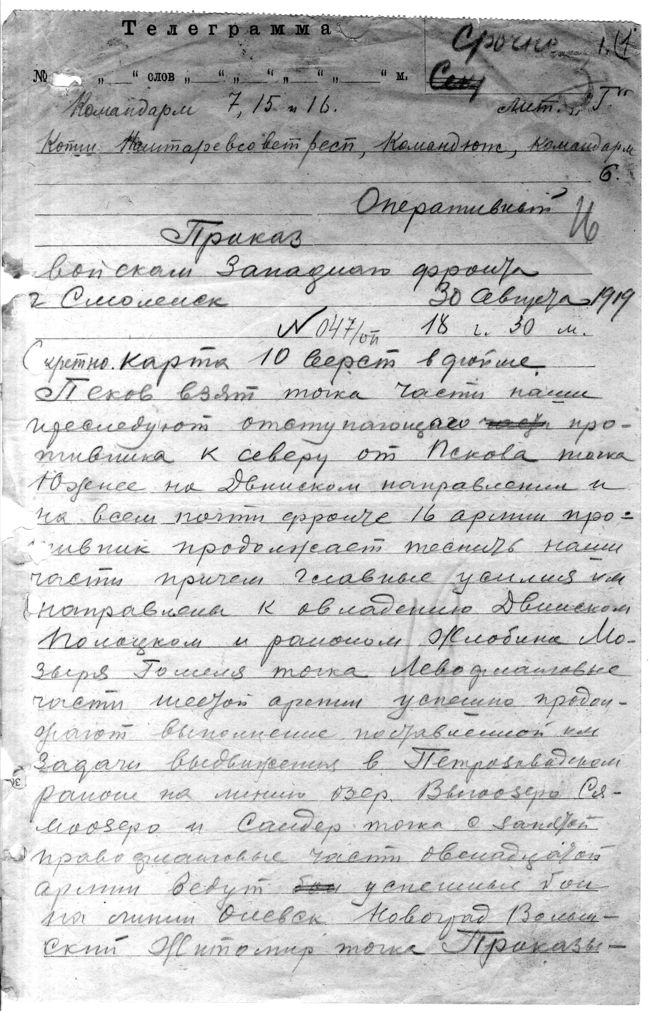 Телеграмма
Срочно
№ „ “ слов „ “ „ “ „ “ „ “ м.
Командарм 7, 15 и 16. лит. „Г“
Копии Наштаревсоветресп, Командюж, командарм
6.
Оперативный
Приказ
войскам Западного фронта
г Смоленск 30 Августа 1919
N 047/оп 18 г. 30 м.
Секретно. карта 10 верст в дюйме
Псков взят точка части наши
преследуют отступающаго про-
тивника к северу от Пскова точка
Южнее на Двинском направлении и
на всем почти фронте 16 армии про=
тивник продолжает теснить наши
части причем главные усилия им
направлена к овладению Двинском
Полоцком и районом Жлобина Мо-
зыря Гомеля точка Левофланговые
части шестой армии успешно продол-
жают выполнение поставленной им
задачи выдвижения в Петрозаводском
районе на линию озер. Выгозеро Ся-
мозеро и Сандер точка
правофланговые части двенадцатой
армии ведут успешные бои
на линии Олевск Новоград Волын-
ский Житомир точка Приказы-